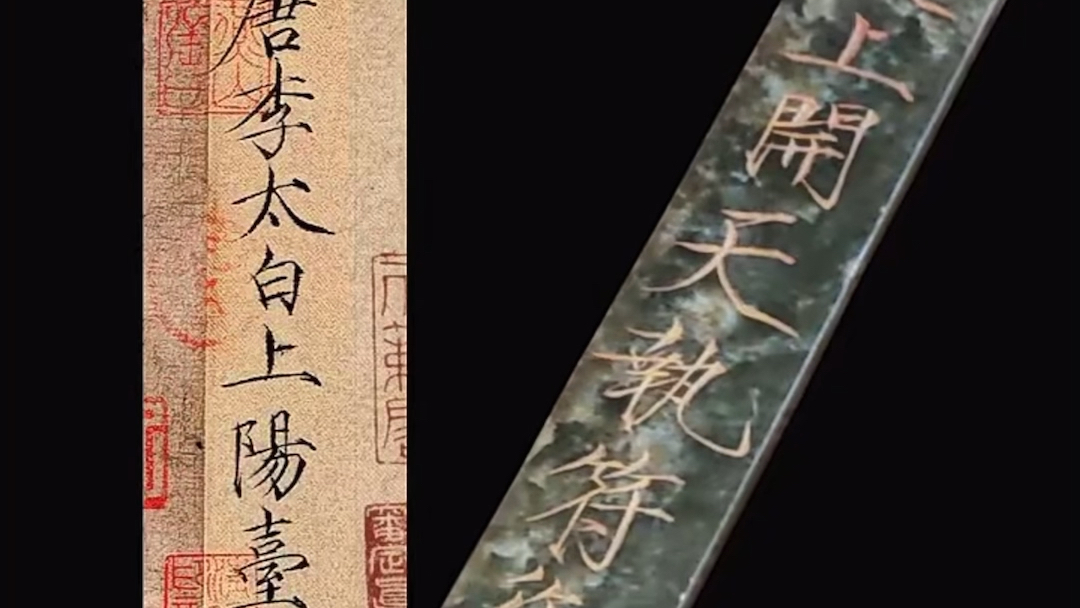 唐李太白上陽臺
上開天執符